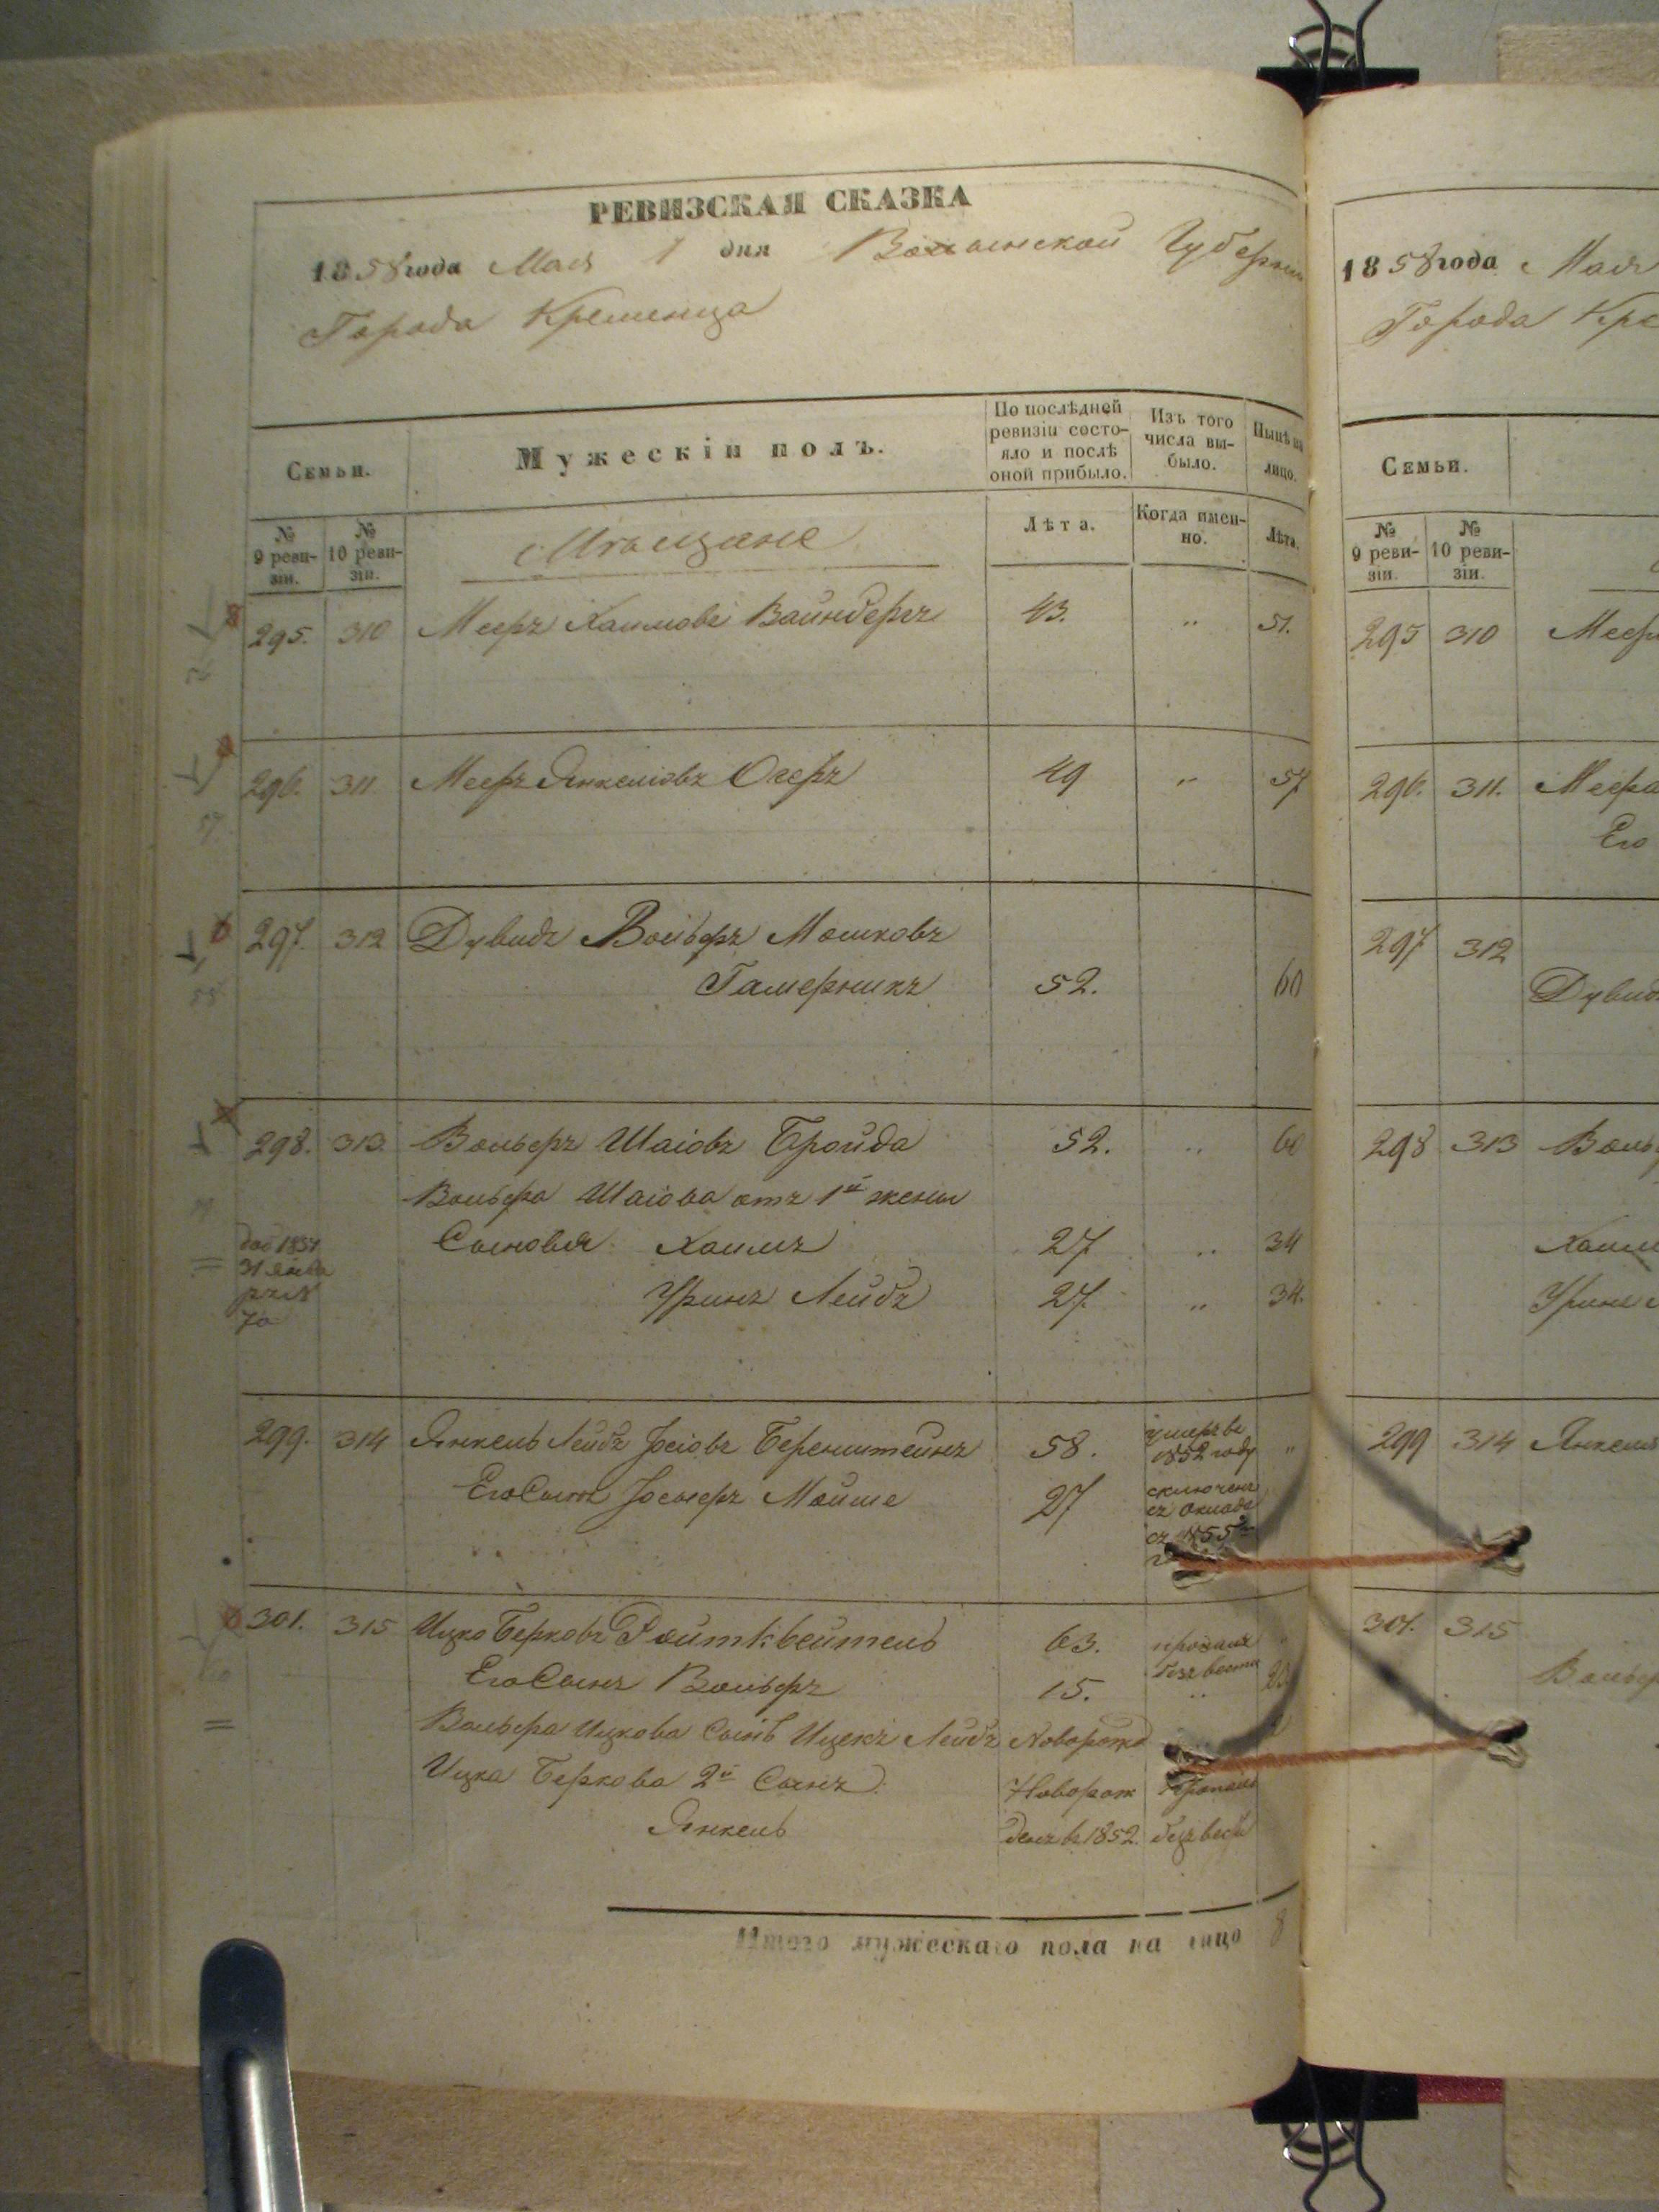 РЕВИЗСКАЯ СКАЗКА
1858 года Мая 1 дня Волынской Губернии
Города Кременца
Семьи.
Мужескій полъ.
По послѣдней ревизіи состо-
яло и послѣ
оной прибыло.
Изъ того
числа вы-
было.
Нынѣ на
лицо.
№
9 реви-
зіи.
№
10 реви-
зіи.
Мѣщане
Лѣта.
Когда имен-
но.
Лѣта.
295. 310 Мееръ Хаимовъ Вайнбергъ 43. " 51.
296. 311. Мееръ Янкеліовъ Огеръ 49 " 57
297. 312 Дувидъ Вольфъ Мошковъ
Гамерникъ 52. 60
298. 313 Вольфъ Шаіовъ Бройда 52. " 60
Вольфа Шаіова отъ 1й жены
Сыновья Хаимъ 27 " 34
Уринъ Лейбъ 27. " 34.
299. 314 Янкель Лейбъ Іосіовъ Беренштейнъ 58. умеръ въ
1852 году "
Его Сынъ Іосифъ Мойше 27 сключенъ
съ оклада
съ 1855
301. 315 Ицко Берковъ Ройтквейтель 63. пропалъ
безъ вести
Его Сынъ Вольфъ 15. "
Вольфа Ицкова Сынъ Ицекъ Лейбъ Новорожд
Ицка Беркова 2й Сынъ Новорож пропалъ
Янкель денъ въ 1852. безъ вест
Итого мужескаго пола на лицо 8
1858 года Мая
Города Кре
Семьи.
№
9 реви-
зіи.
№
10 реви-
зіи.
295 310 Меер
296. 311. Меера
Его
297 312
Дувид
298 313 Воль
Хаим
Урина
299 314 Янкеля
301. 315
Вольф